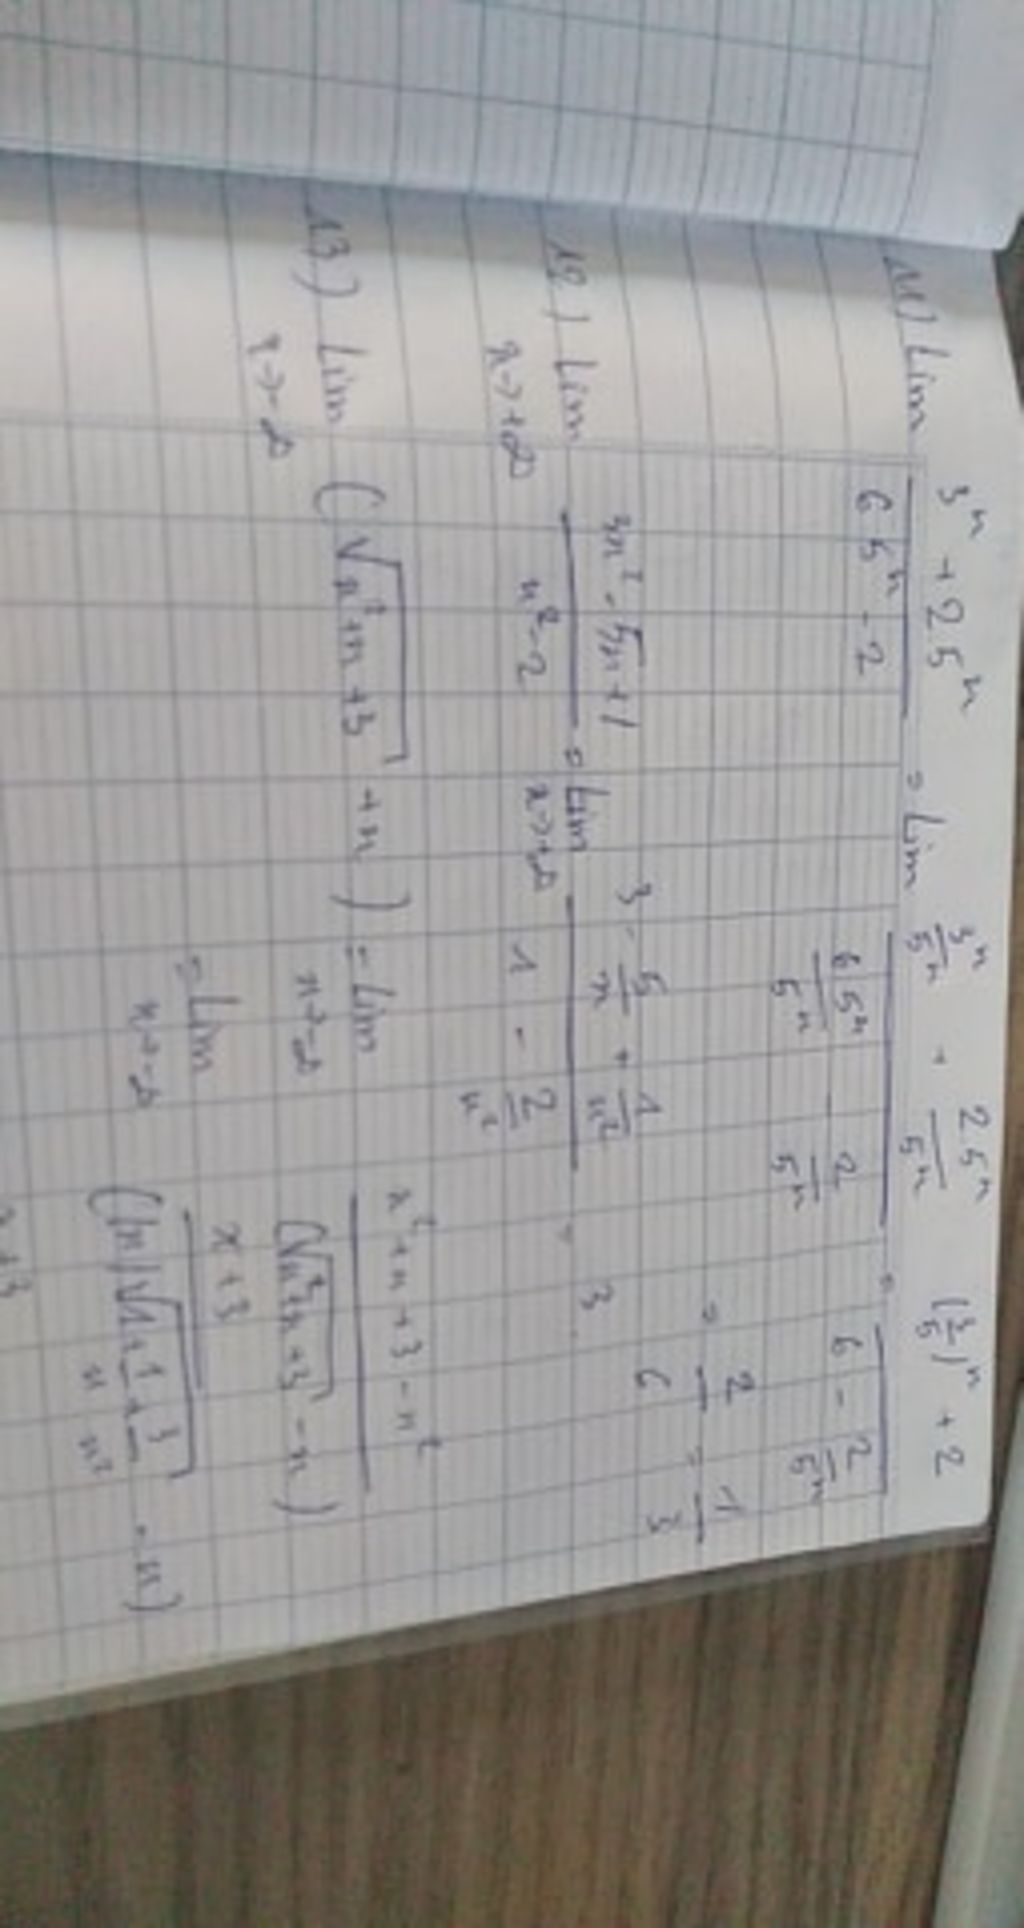 11) Lim (3ⁿ + 2 5ⁿ)/(6 5ⁿ - 2) = Lim (3ⁿ/5ⁿ + 2 5ⁿ/5ⁿ)/(6 5ⁿ/5ⁿ - 2/5ⁿ) = ((3/5)ⁿ + 2)/(6 - 2/5ⁿ)
= 2/6 = 1/3
12) Lim x→+∞ (3x² - 5x + 1)/(x² - 2) = Lim x→+∞ (3 - 5/x + 1/x²)/(1 - 2/x²) = 3
13) Lim x→-∞ (√(x² + x + 3) + x) = Lim x→-∞ (x² + x + 3 - x²)/(√(x² + x + 3) - x)
= Lim x→-∞ (x + 3)/(|x| √(1 + 1/x + 3/x²) - x)
x + 3